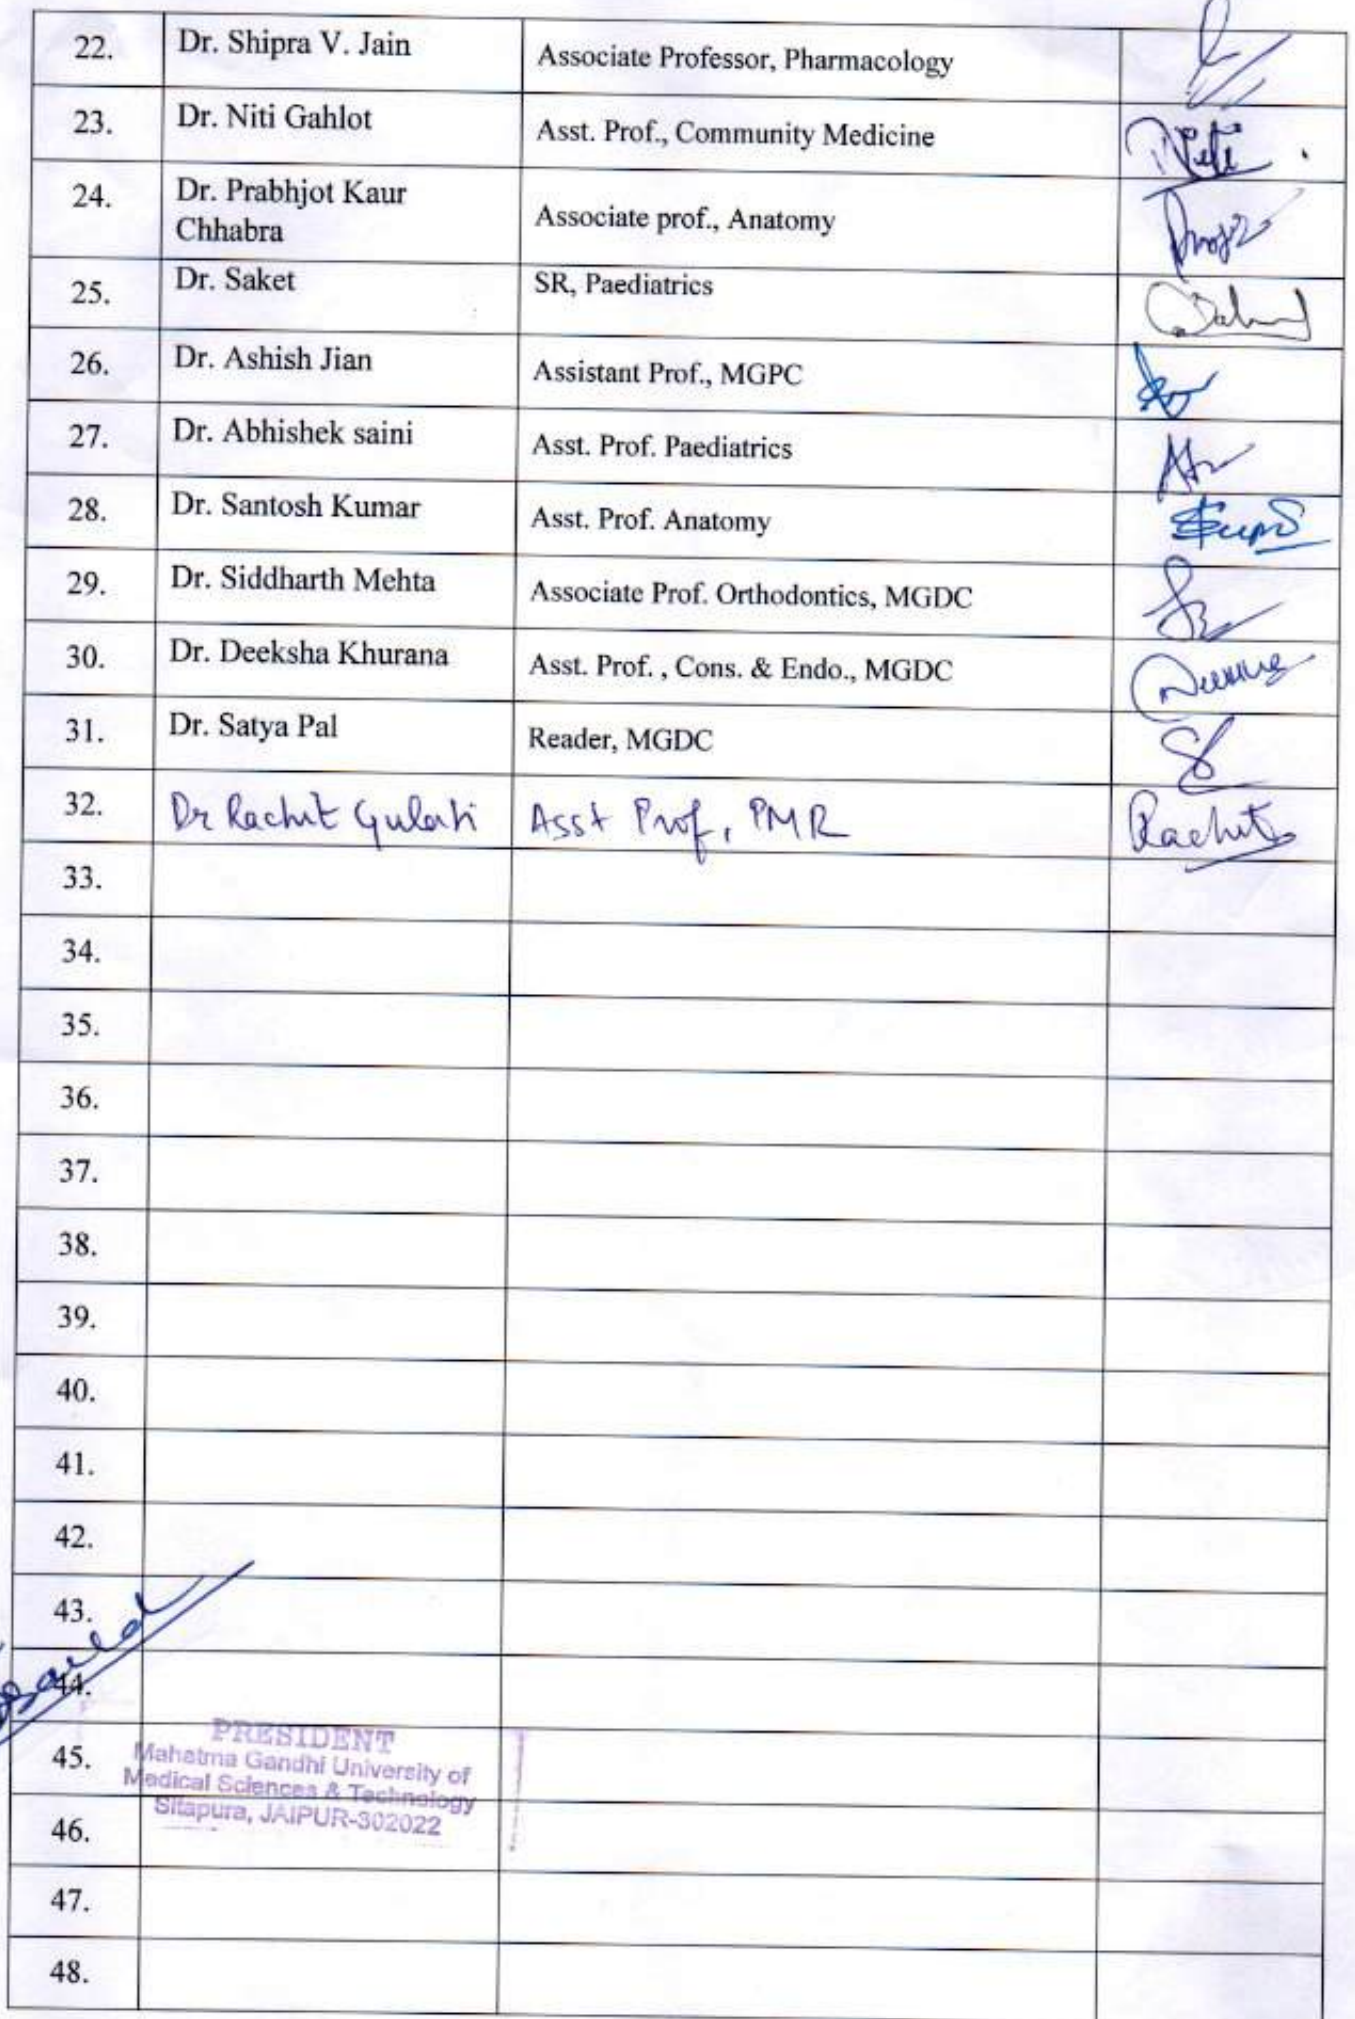 22. Dr. Shipra V. Jain Associate Professor, Pharmacology
23. Dr. Niti Gahlot Asst. Prof., Community Medicine Niti
24. Dr. Prabhjot Kaur
Chhabra Associate prof., Anatomy
25. Dr. Saket SR, Paediatrics
26. Dr. Ashish Jian Assistant Prof., MGPC
27. Dr. Abhishek saini Asst. Prof. Paediatrics
28. Dr. Santosh Kumar Asst. Prof. Anatomy
29. Dr. Siddharth Mehta Associate Prof. Orthodontics, MGDC
30. Dr. Deeksha Khurana Asst. Prof. , Cons. & Endo., MGDC
31. Dr. Satya Pal Reader, MGDC
32. Dr Rachit Gulati Asst Prof, PMR Rachit
33.
34.
35.
36.
37.
38.
39.
40.
41.
42.
43.
44.
45.
PRESIDENT
Mahatma Gandhi University of
Medical Sciences & Technology
Sitapura, JAIPUR-302022
46.
47.
48.